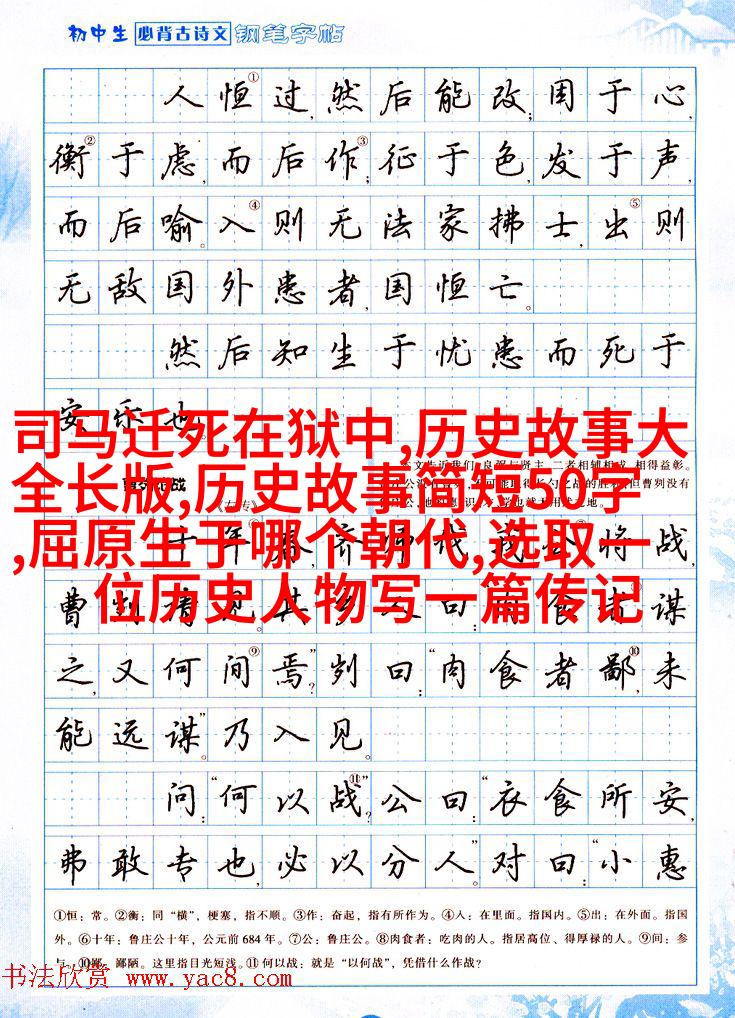 初中生 必背古诗文 钢笔字帖
人恒①过,然后能改;困于心,
衡②于虑,而后作③;征于色,发于声,
而后喻。入④则无法家拂士,出⑤则
无敌国外患者,国恒亡。
然后知生于忧患而死于
安乐也。
司马迁死在狱中,历史故事大
全长版,历史故事简短30字
,屈原生于哪个朝代,选取一
位历史人物写一篇传记
二者相辅相成,相得益彰。
之,又何间⑨焉?”刿曰:“肉食者鄙⑩,未
能远谋。”乃入见。
问:“何以战⑪?”公曰:“衣食所安,
弗敢专也,必以分人。”对曰:“小惠
①恒:常。②衡:同“横”,梗塞,指不顺。③作:奋起,指有所作为。④入:在里面。指国内。⑤出:在外面。指国
外。⑥十年:鲁庄公十年,公元前684年。⑦公:鲁庄公。⑧肉食者:吃肉的人。指居高位、得厚禄的人。⑨间:参
与。⑩鄙:鄙陋。这里指目光短浅。⑪何以战:就是“以何战”,凭借什么作战?
书法欣赏 www.yac8.com